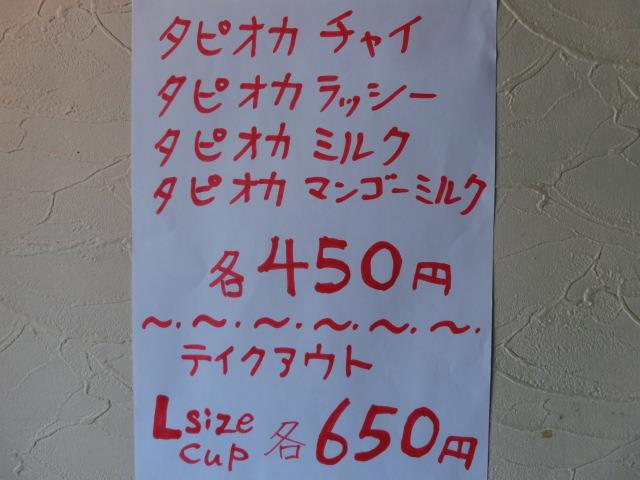 タピオカ チャイ
タピオカ ラッシー
タピオカ ミルク
タピオカ マンゴーミルク
各450円
〜.〜.〜.〜.〜.〜.
テイクアウト
Lsize cup 各650円